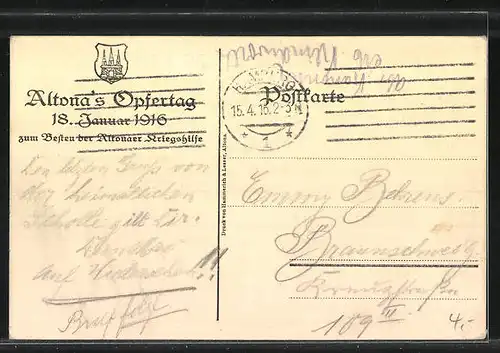 Altona's Opfertag
18. Januar 1916
zum Besten der Altonaer Kriegshilfe
Postkarte
HAMBURG
15.4.16.2-3N
* 1 *
Druck von Hammerich & Lesser, Altona.
Den letzten Gruß von
der heimatlichen
Scholle gilt Dir.
Auf Wiedersehen!!
Brief folgt
Emmy Behrens
Braunschweig
Kreuzstraße
109 II
4.-